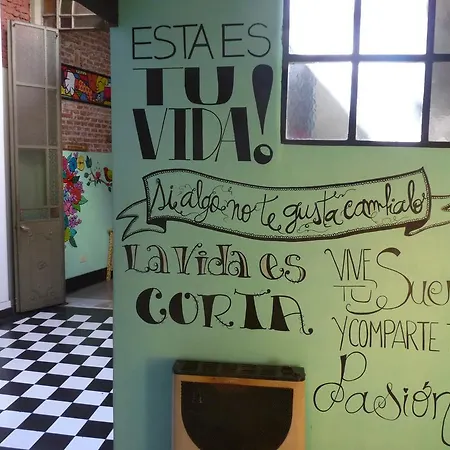 ESTA ES
TU
VIDA!
Si algo no te gusta cambialo
La Vida es
CORTA
VIVE
TU
Y COMPARTE
Pasión